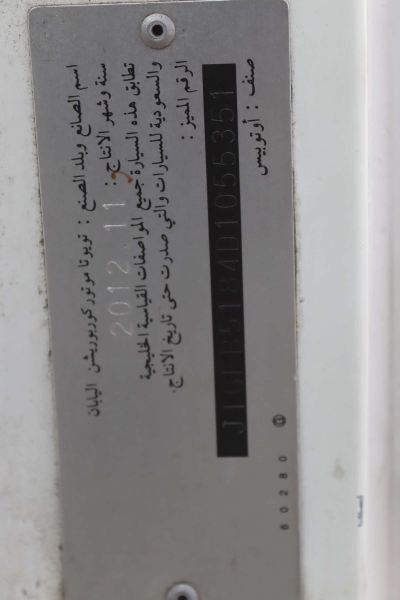 اسم الصانع وبلد الصنع : تويوتا موتور كوربوريشن اليابان
سنة وشهر الانتاج : 2012.11
تطابق هذه السيارة جميع المواصفات القياسية الخليجية
والسعودية للسيارات والتي صدرت حتى تاريخ الانتاج.
الرقم المميز :
صنف : أوتوبيس
60280 G